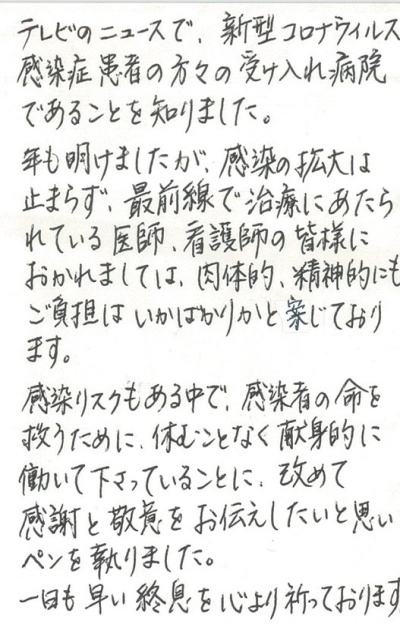 テレビのニュースで、新型コロナウイルス
感染症患者の方々の受け入れ病院
であることを知りました。
年も明けましたが、感染の拡大は
止まらず、最前線で治療にあたら
れている医師、看護師の皆様に
おかれましては、肉体的、精神的にも
ご負担はいかばかりかと案じており
ます。
感染リスクもある中で、感染者の命を
救うために、休むことなく献身的に
働いて下さっていることに、改めて
感謝と敬意をお伝えしたいと思い
ペンを執りました。
一日も早い終息を心より祈っております